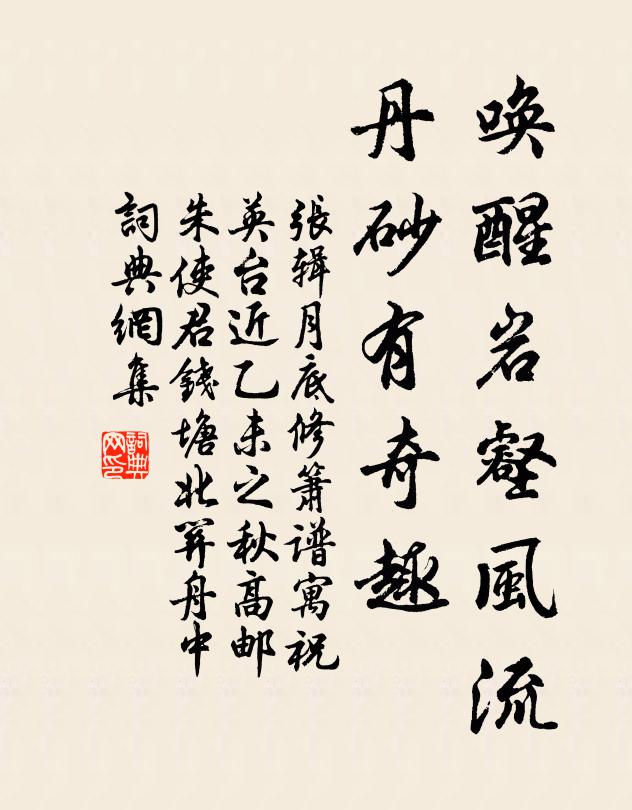 唤醒岩壑風流
丹砂有奇趣
張辑月底修箫谱寓祝
英台近乙未之秋高邮
朱使君錢塘北關舟中
詞典網集
詞典网印